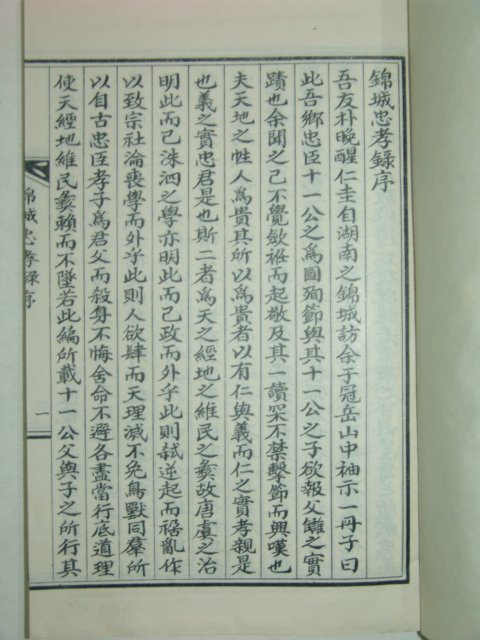 錦城忠孝錄序
吾友朴晩醒仁圭自湖南之錦城訪余于冠岳山中袖示一冊子曰
此吾鄉忠臣十一公之爲國殉節與其十一公之子欲報父讎之實
蹟也余聞之已不覺斂袵而起敬及其一讀罙不禁擊節而興嘆也
夫天地之性人爲貴其所以爲貴者以有仁與義而仁之實孝親是
也義之實忠君是也斯二者爲天之經地之維民之彝故唐虞之治
明此而已洙泗之學亦明此而已政而外乎此則弑逆起而禍亂作
以致宗社淪喪學而外乎此則人欲肆而天理滅不免鳥獸同羣所
以自古忠臣孝子爲君父而殺身不悔舍命不避各盡當行底道理
使天經地維民彝賴而不墜若此編所載十一公父與子之所行其
錦城忠孝錄序
一